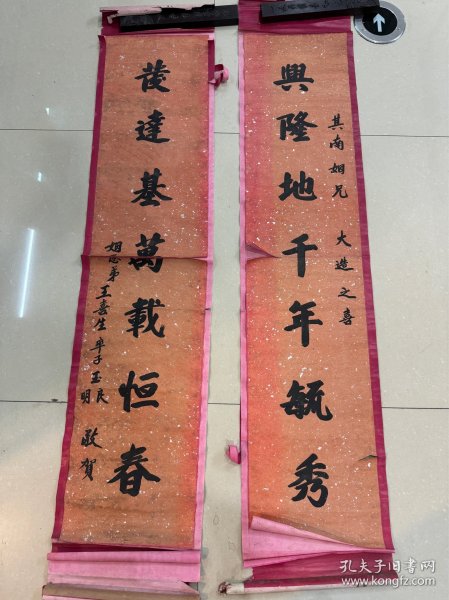 其南姻兄 大造之喜
興隆地千年毓秀
發達基萬載恒春
姻愚弟王喜生率子玉民
明
敬賀
孔夫子旧书网
www.kongfz.com